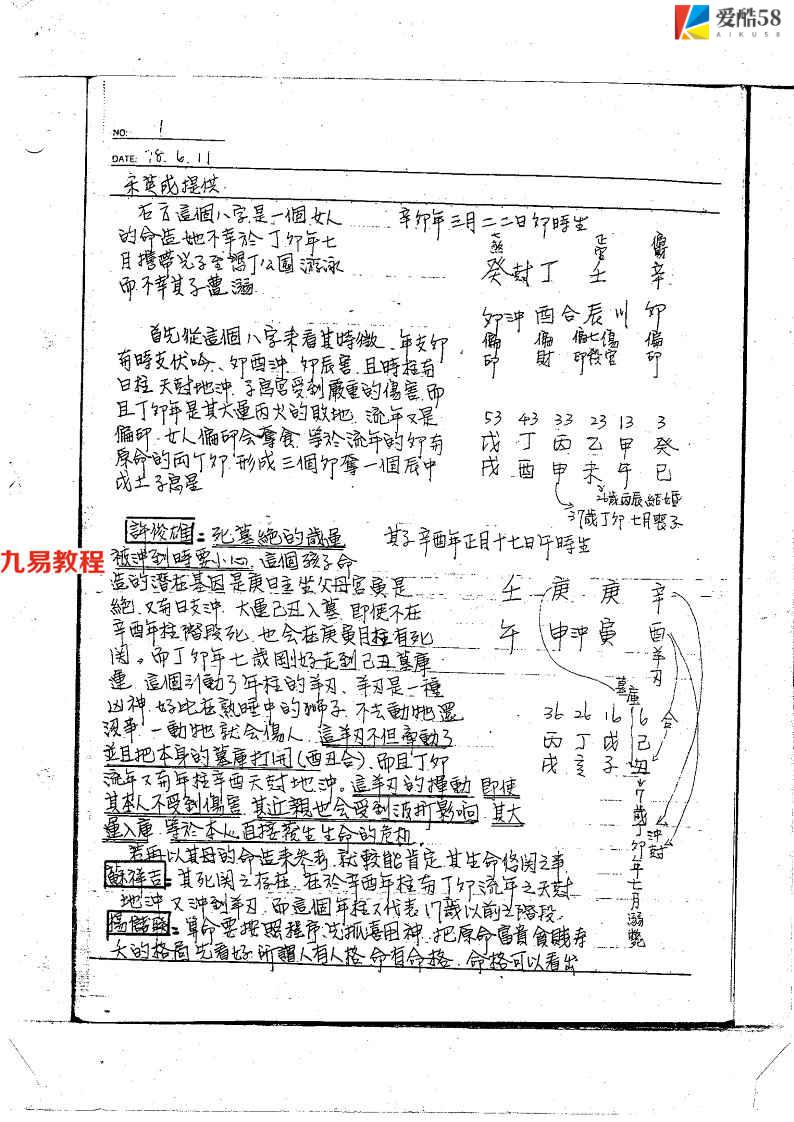 爱酷58
AIKU58
NO: 1
DATE: 78.6.11
宋英成提供.
右方這個八字是一個女人
的命造她不幸於丁卯年七
月攜帶兒子至 公園游泳
而不幸其子遭溺
辛卯年三月二二日卯時生
煞 正官 偏財
癸 尅 丁 壬 辛
卯 沖 酉 合 辰 川 卯
偏印 偏財 偏印 七殺 傷官 偏印
首先從這個八字來看其特徵、年支卯
有時支伏吟、卯酉沖、卯辰害、且時柱有
日柱天尅地沖.子息宮受到嚴重的傷害.而
且丁卯年是其大運丙火的敗地.流年又是
偏印.女人偏印会奪食.等於流年的卯有
原命的兩个卯.形成三個卯奪一個辰中
戊土子息星
53 43 33 23 13 3
戊 丁 丙 乙 甲 癸
戌 酉 申 未 午 巳
26歲丙辰結婚
37歲丁卯七月喪子
許俊雄:死墓絕的歲運
被沖到時要小心.這個孩子命
造的潛在基因是庚日主坐父母宮寅是
絕.又有日支沖.大運己丑入墓.即使不在
辛酉年柱階段死.也会在庚寅月柱有死
関。而丁卯年七歲剛好走到己丑墓庫
運.這個引動了年柱的羊刃、羊刃是一種
凶神.好比在熟睡中的獅子.不去動牠還
沒事.一動牠就会傷人.這羊刃不但牽動了
並且把本身的墓庫打開(酉丑合).而且丁卯
流年又有年柱辛酉天尅地沖。這羊刃的撞動.即使
其本人不受到傷害.其近親也会受到波折影响.其大
運入庫.等於本人直接發生生命的危机.
其子辛酉年正月十七日午時生
壬 庚 庚 辛
午 申 沖 寅 酉 羊刃
墓庫
36 26 16 6 合
丙 丁 戊 己
戌 亥 子 丑
7歲丁卯年七月溺斃
沖尅
若再以其母的命造來參考.就較能肯定其生命攸関之事
蘇祥吉:其死関之存在.在於辛酉年柱有丁卯流年之天尅
地沖.又沖到羊刃.而這個年柱又代表17歲以前之階段.
:算命要按照程序.先抓喜用神.把原命富貴貧賤壽
夭的格局先看好.所謂人有人格.命有命格.命格可以看出
九易教程